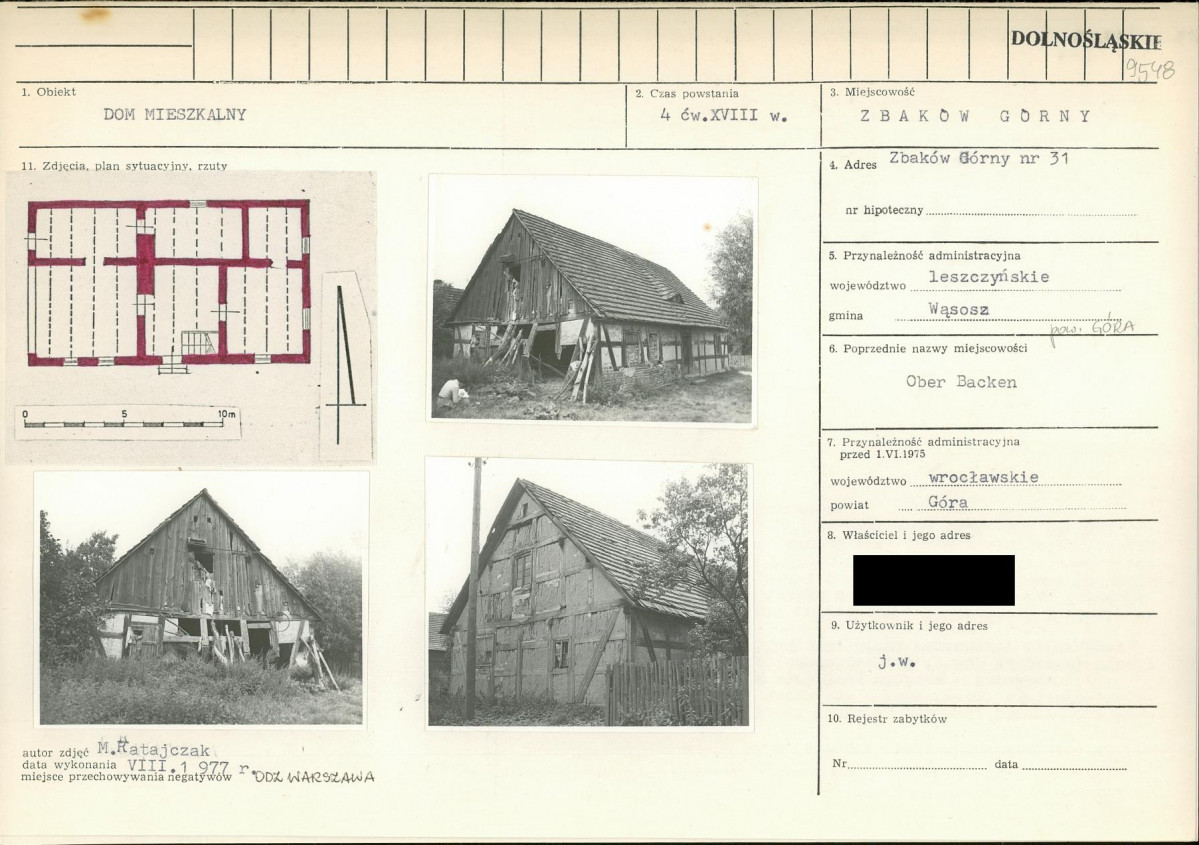 DOLNOŚLĄSKIE
9548
1. Obiekt
DOM MIESZKALNY
2. Czas powstania
4 ćw.XVIII w.
3. Miejscowość
ZBAKÓW GÓRNY
11. Zdjęcia, plan sytuacyjny, rzuty
0 5 10m
autor zdjęć M.Ratajczak
data wykonania VIII.1977 r.
miejsce przechowywania negatywów ODZ WARSZAWA
4. Adres Zbaków Górny nr 31
nr hipoteczny
5. Przynależność administracyjna
województwo leszczyńskie
gmina Wąsosz
pow. GÓRA
6. Poprzednie nazwy miejscowości
Ober Backen
7. Przynależność administracyjna
przed 1.VI.1975
województwo wrocławskie
powiat Góra
8. Właściciel i jego adres
9. Użytkownik i jego adres
j.w.
10. Rejestr zabytków
Nr data